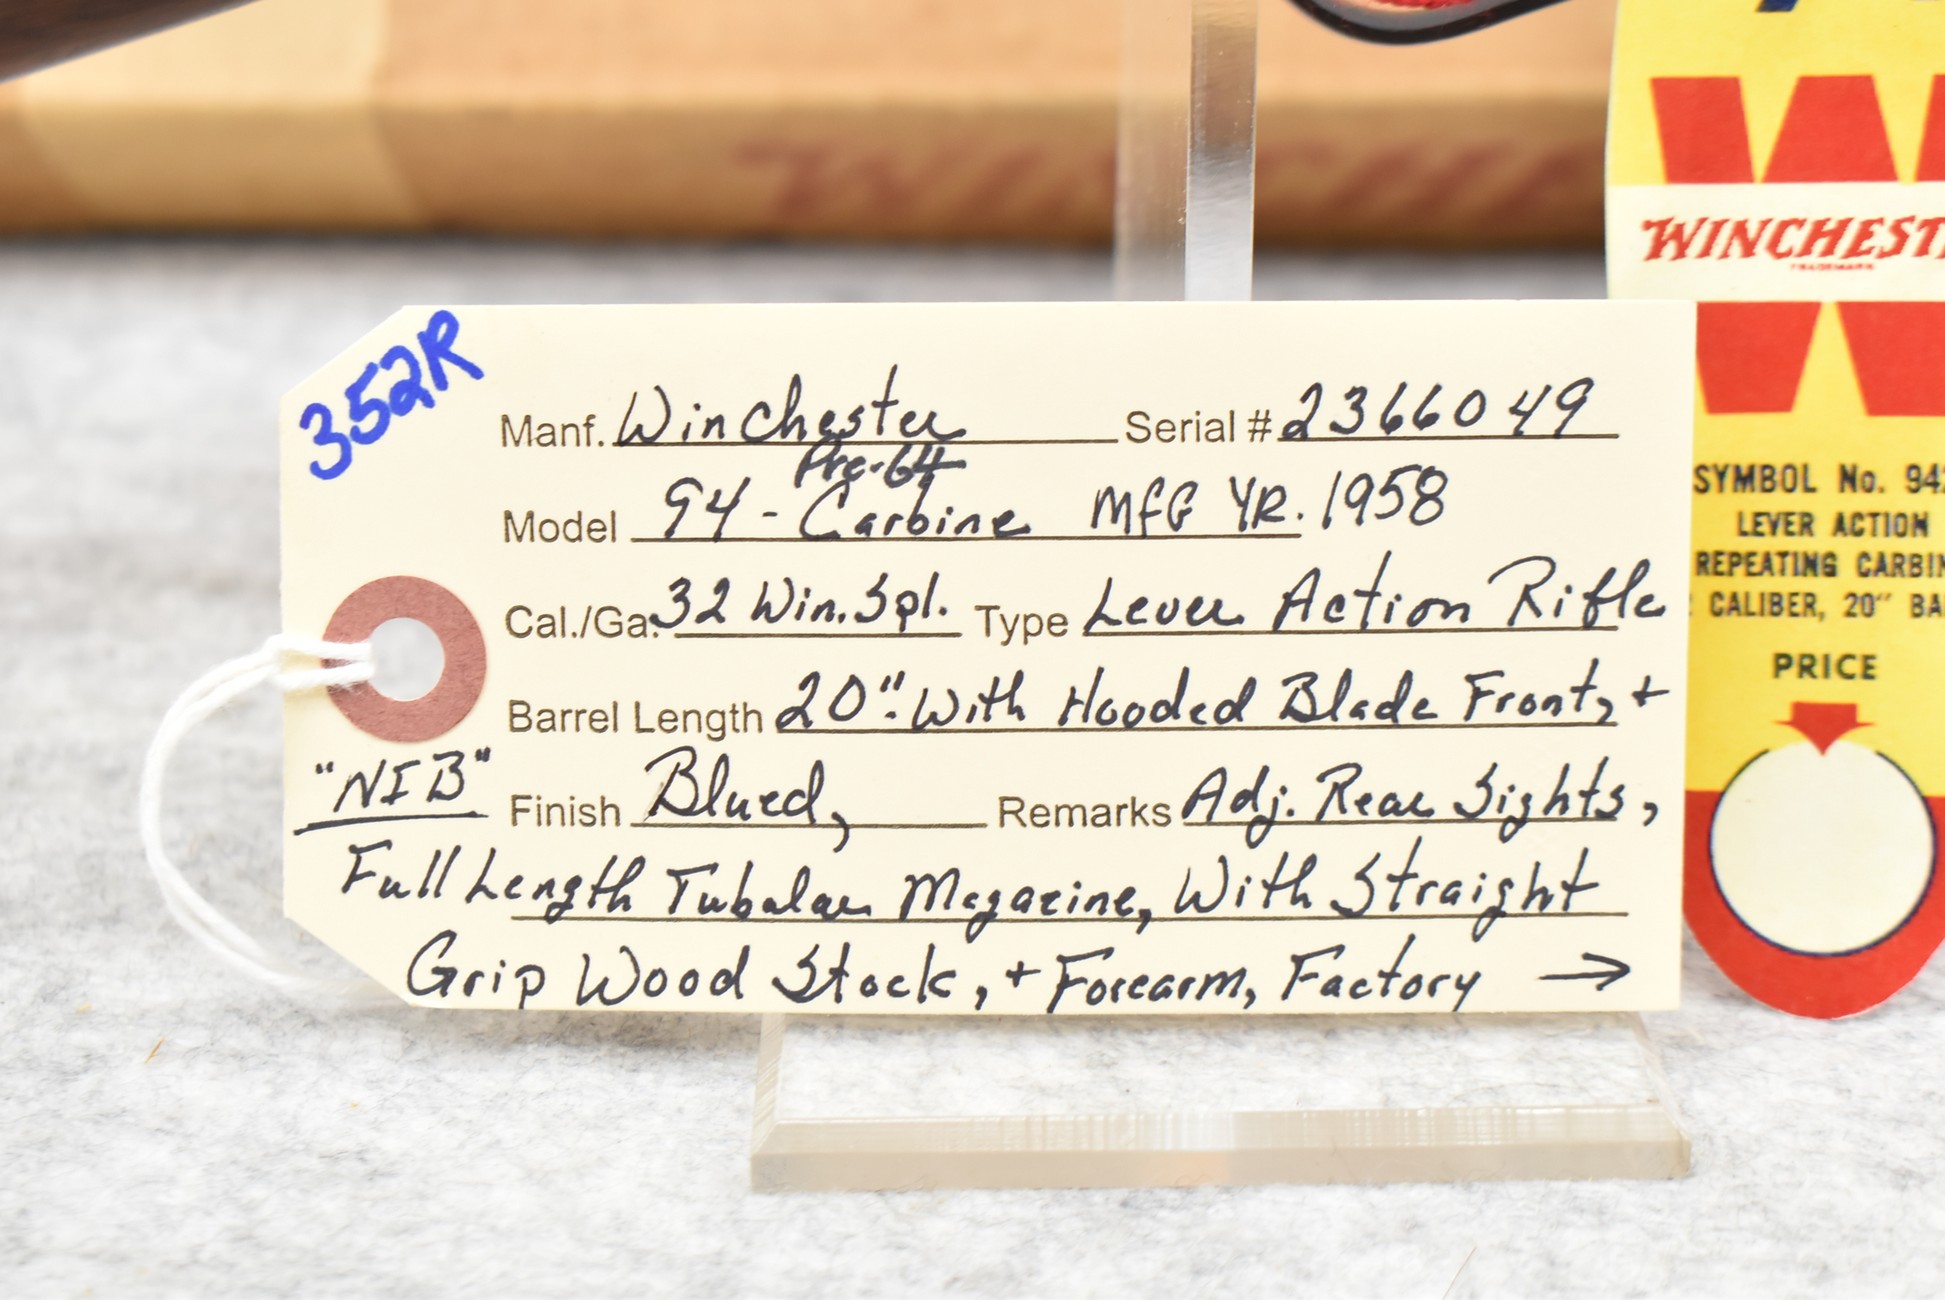 WINCHESTE
352R
Manf. Winchester Serial # 2366049
Pre-64
Model 94 - Carbine MFG YR. 1958
Cal./Ga. 32 Win. Spl. Type Lever Action Rifle
Barrel Length 20". With Hooded Blade Front, +
"NIB" Finish Blued, Remarks Adj. Rear Sights,
Full Length Tubular Magazine, With Straight
Grip Wood Stock, + Forearm, Factory →
W
WINCHEST
TRADEMARK
W
SYMBOL No. 94
LEVER ACTION
REPEATING CARBIN
CALIBER, 20" BA
PRICE